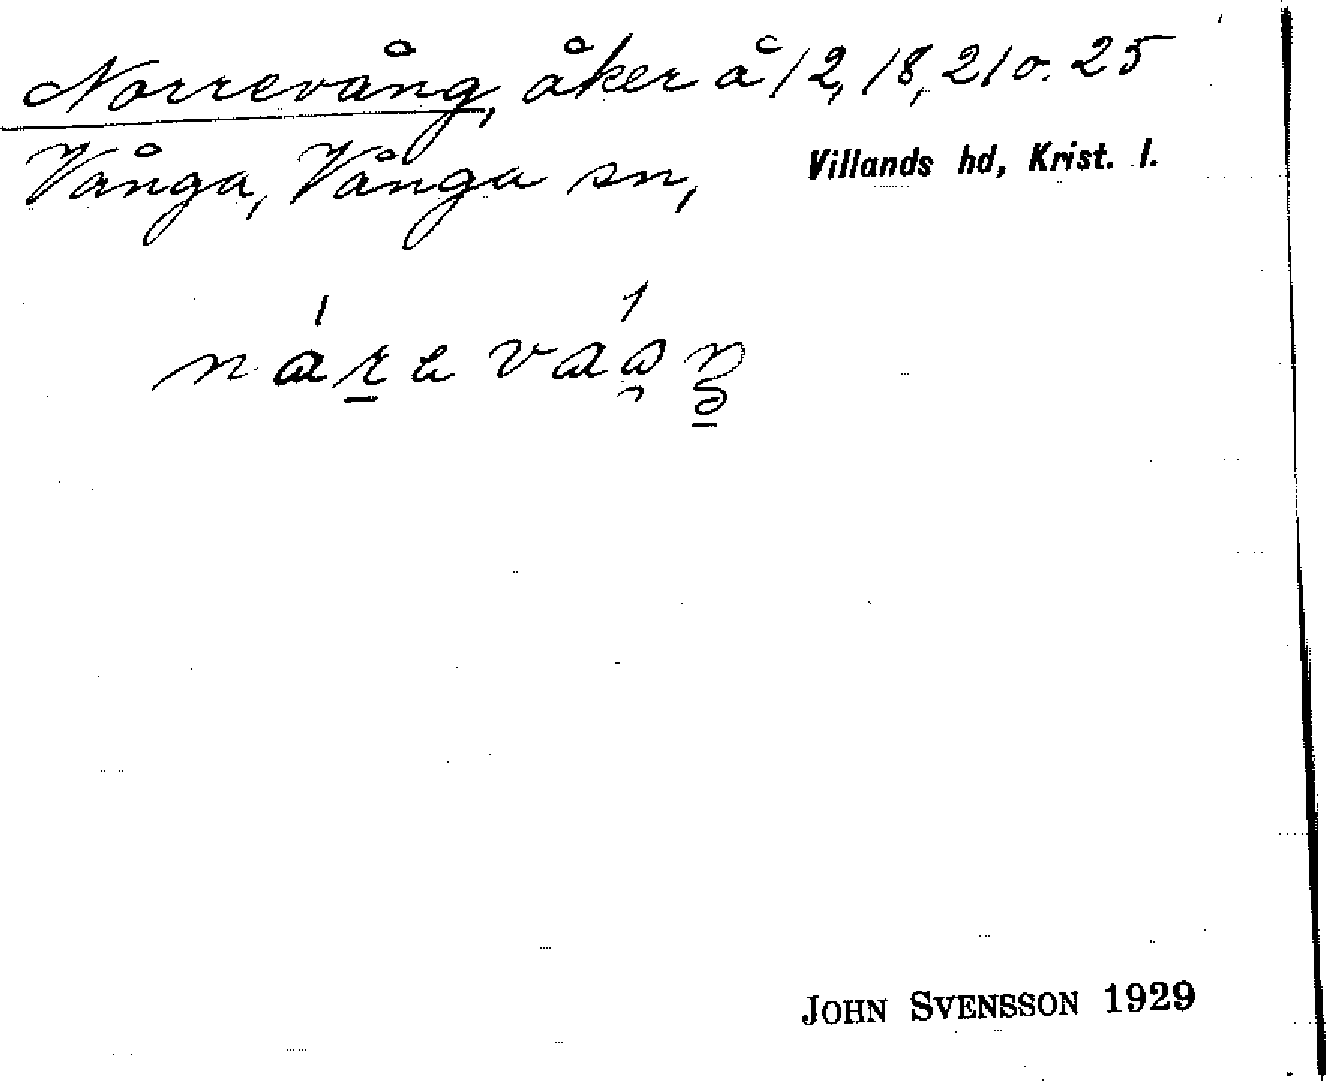 Norrevång, åker å 12, 18, 21 o. 25
Vånga, Vånga sn, Villands hd, Krist. l.
JOHN SVENSSON 1929